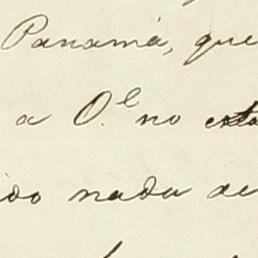 Panamá, que
a O.l no esta
ido nada de